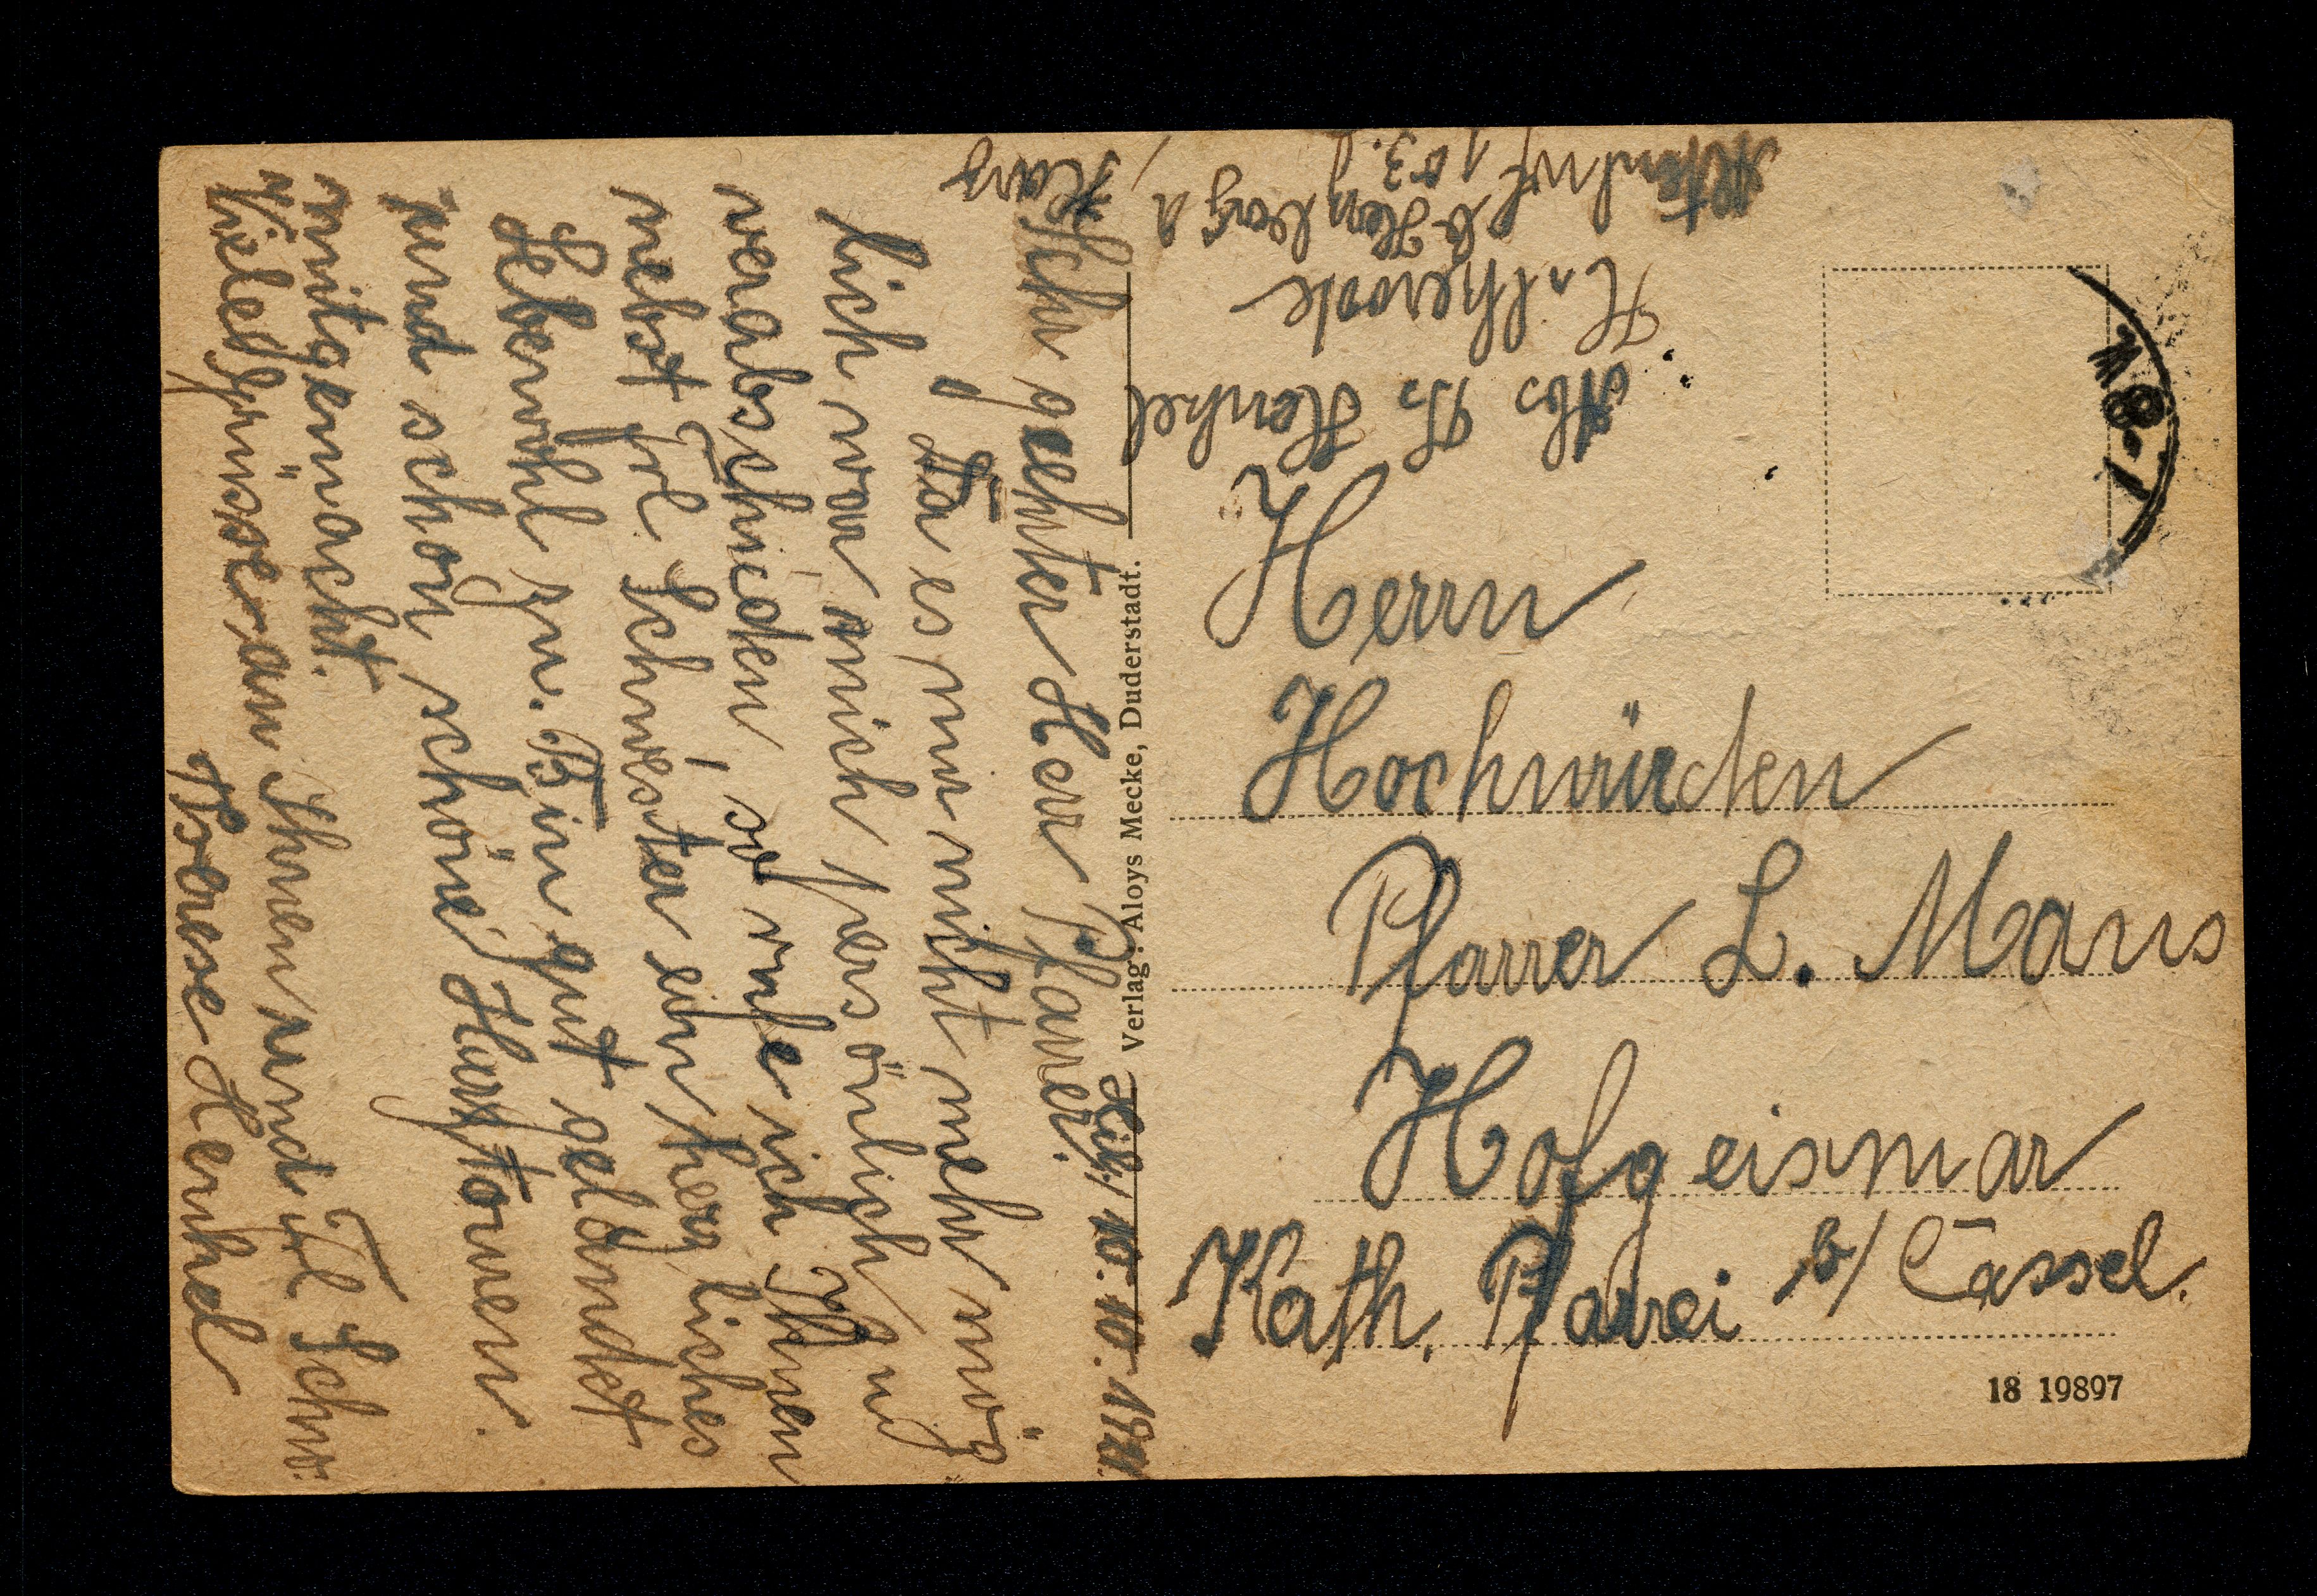 Hilk. 10.10.1921.
Sehr geehrter Herr Pfarrer!
Da es mir nicht mehr mög
lich war mich persönlich zu
verabschieden, so rufe ich Ihnen
nebst Frl Schwester ein herzliches
Lebewohl zu. Bin gut gelandet
und schon schöne Harztouren
mitgemacht.
Viele Grüsse an Ihnen und Frl Schw.
Therese Henkel
Verlag: Aloys Mecke, Duderstadt.
Abs Th Henkel
Hilkerode
b. Herzberg a
Harz
Herrn
Hochwürden
Pfarrer L. Maus
Hofgeismar
b/ Cassel.
Kath. Pfarrei
18 19897
-8 V